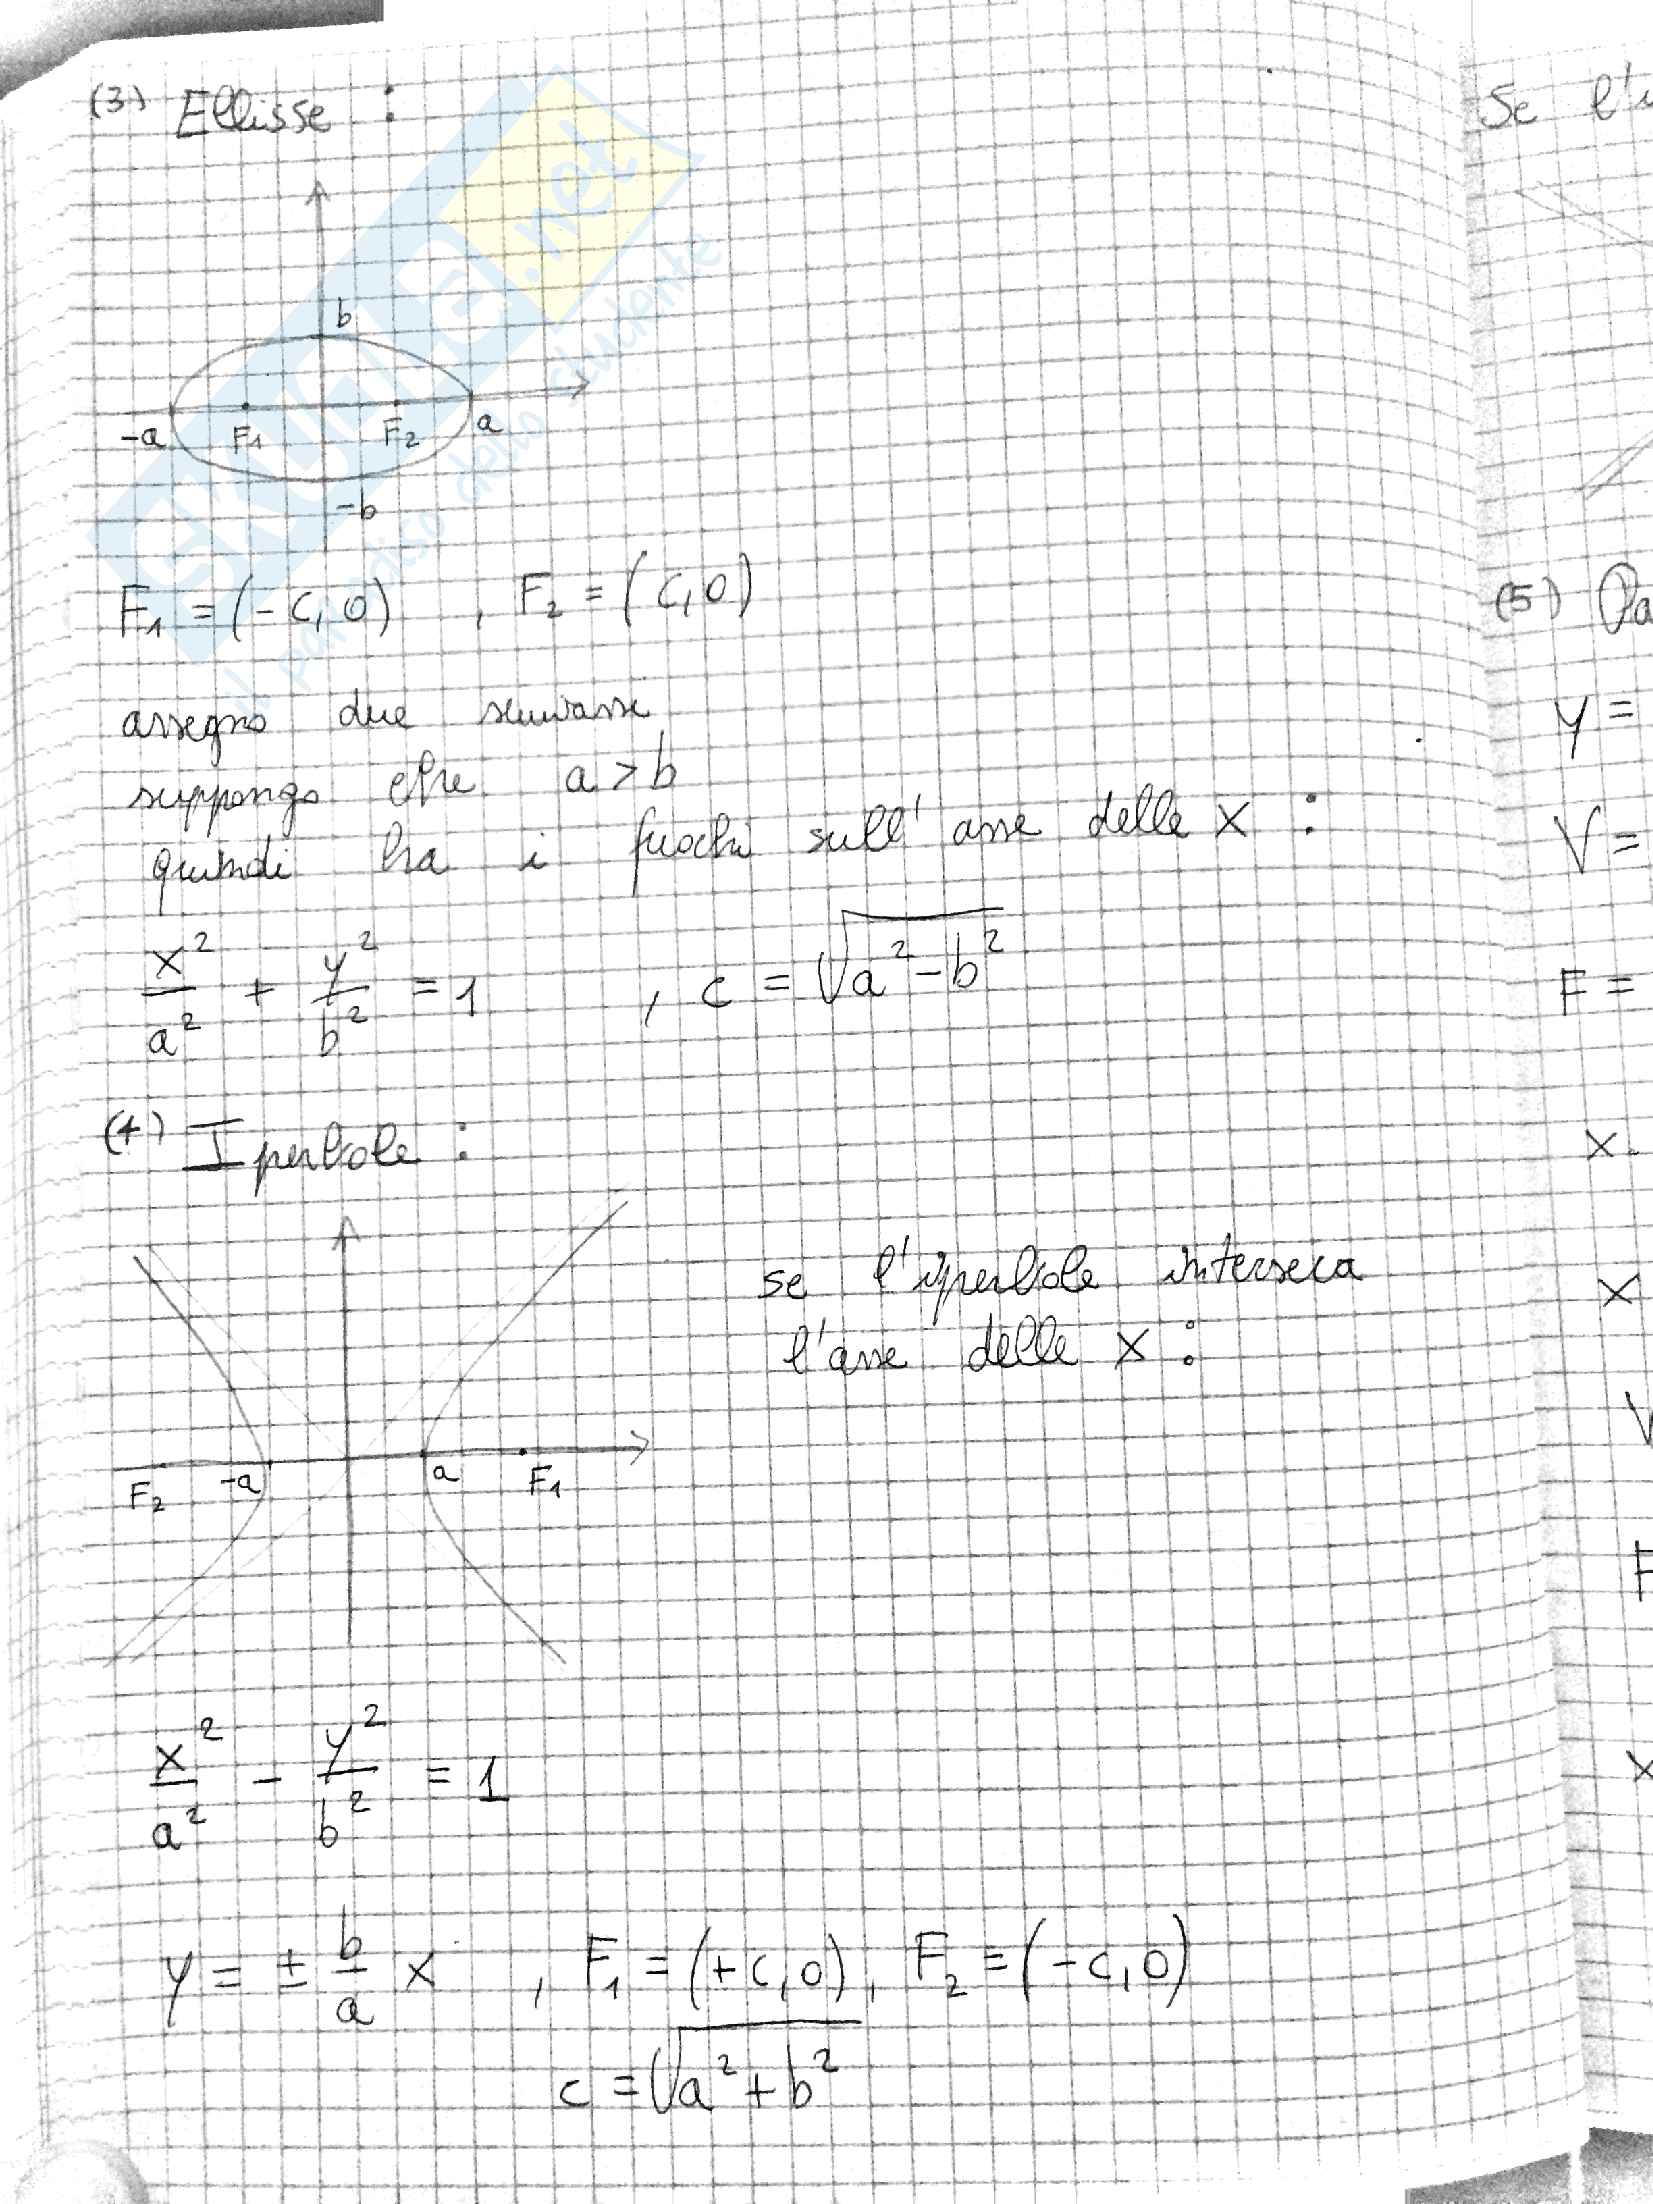 (3) Ellisse :
b
-a F₁ F₂ a
-b
F₁ = (-c, 0) , F₂ = (c, 0)
assegno due semiassi
suppongo che a > b
quindi ha i fuochi sull' asse delle x :
x²/a² + y²/b² = 1 , c = √(a² - b²)
(4) Iperbole :
se l'iperbole interseca
l'asse delle x :
F₂ -a a F₁
x²/a² - y²/b² = 1
y = ± b/a x , F₁ = (+c, 0), F₂ = (-c, 0)
c = √(a² + b²)
Se l'
(5)
y =
V =
F =
x
x
V
F
x
SKUOLA.net
il paradiso dello studente